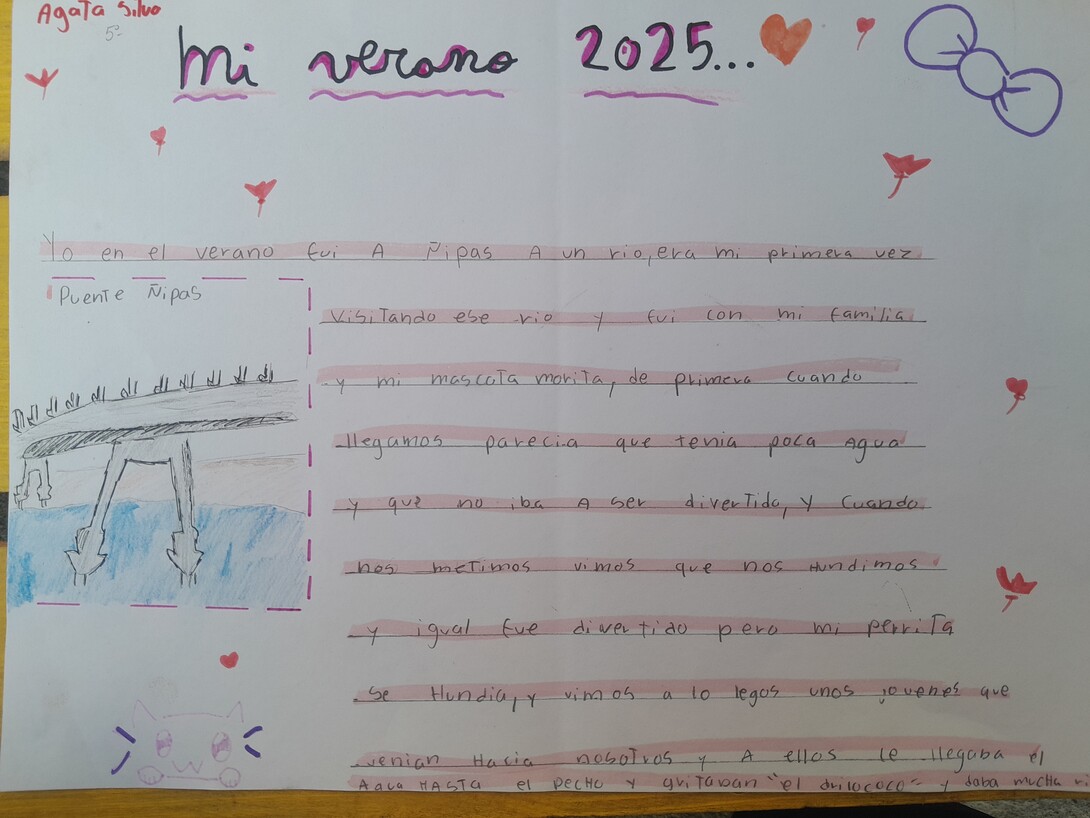 Agata Silva
5°
Mi verano 2025...
Yo en el verano fui A Ñipas A un rio, era mi primera vez
Puente Ñipas
visitando ese rio y fui con mi familia
y mi mascota morita, de primera cuando
llegamos parecia que tenia poca Agua
y que no iba A ser divertido, y cuando
nos metimos vimos que nos Hundimos
y igual fue divertido pero mi perrita
se Hundia, y vimos a lo legos unos jovenes que
venian Hacia nosotros y A ellos le llegaba el
Agua HASTA el pecho y gritavan "el drilococo" y daba mucha